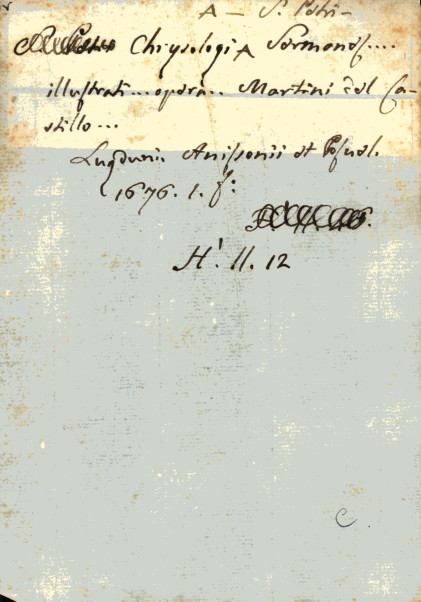 A — S. Petri —
Chrysologi A Sermones....
illustrati... opera... Martini del Ca-
stillo...
Lugduni Anissonii et Posuel.
1676. 1. f:
H. II. 12
C.